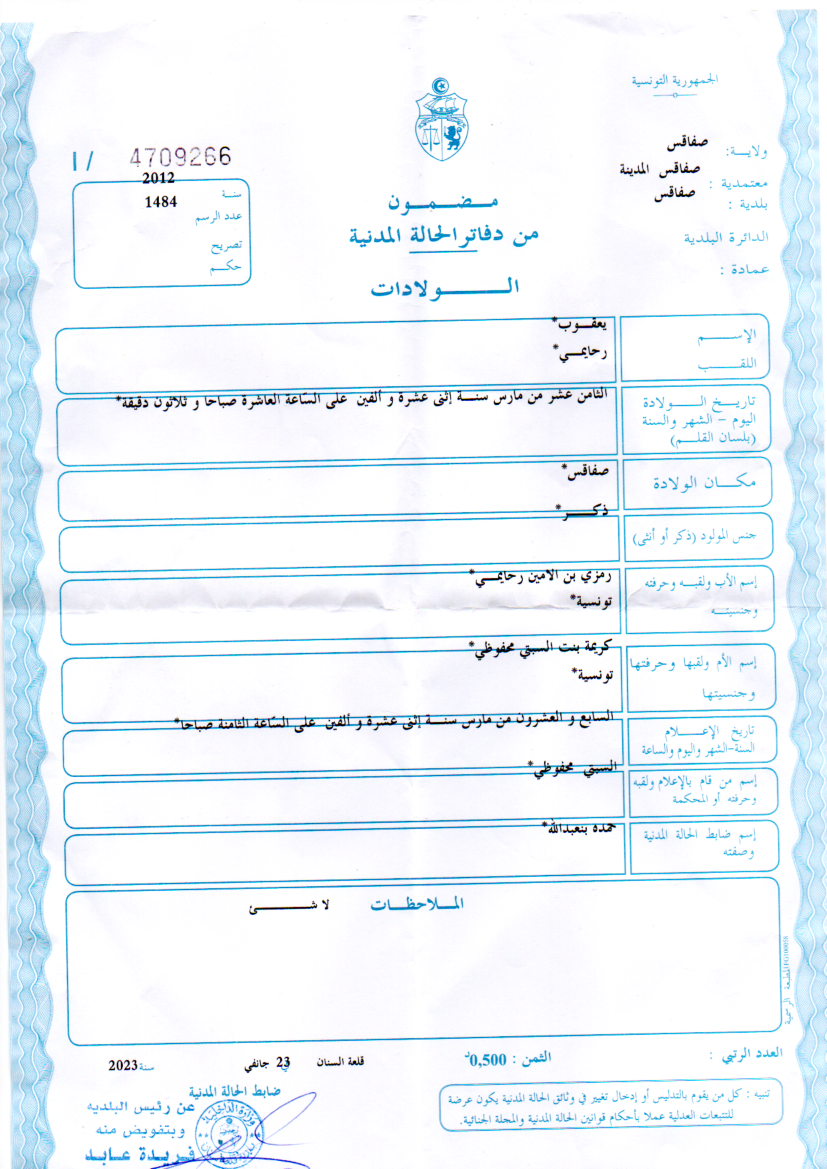 الجمهورية التونسية
ولايـــة: صفاقس
معتمدية : صفاقس المدينة
بلدية : صفاقس
الدائرة البلدية
عمادة :
I / 4709266
سنـــة 2012
عدد الرسم 1484
تصريح
حكـــم
مـــضـــمـــون
من دفاتر الحالة المدنية
الـــــــولادات
الإســـــم يعقـــوب*
اللقـــــب رحايمـــي*
تاريـــخ الـــــولادة الثامن عشر من مارس سنـــة إثنى عشرة و ألفين على السّاعة العاشرة صباحا و ثلاثون دقيقة*
اليوم – الشهر والسنة
(بلسان القلـــم)
مكـــان الولادة صفاقس*
جنس المولود (ذكر أو أنثى) ذكـــــر*
إسم الأب ولقبـــه وحرفته رمزي بن الامين رحايمـــي*
وجنسيتـــه تونسية*
إسم الأم ولقبها وحرفتها كريمة بنت السبتي محفوظي*
وجنسيتها تونسية*
تاريخ الإعـــــلام السابع و العشرون من مارس سنـــة إثنى عشرة و ألفين على السّاعة الثامنة صباحا*
السنة-الشهر واليوم والساعة
إسم من قام بالإعلام ولقبه السبتي محفوظي*
وحرفته أو المحكمة
إسم ضابط الحالة المدنية حمده بنعبدالله*
وصفته
الملاحظـــات لا شـــــــئ
المطبعة الرسمية
العدد الرتبي :
الثمن : 0,500د
قلعة السنان في 23 جانفي سنة 2023
تنبيه : كل من يقوم بالتدليس أو إدخال تغيير في وثائق الحالة المدنية يكون عرضة
للتتبعات العدلية عملا بأحكام قوانين الحالة المدنية والمجلة الجنائية.
ضابط الحالة المدنية
عن رئيس البلديه
وبتفويض منه
فريدة عابد